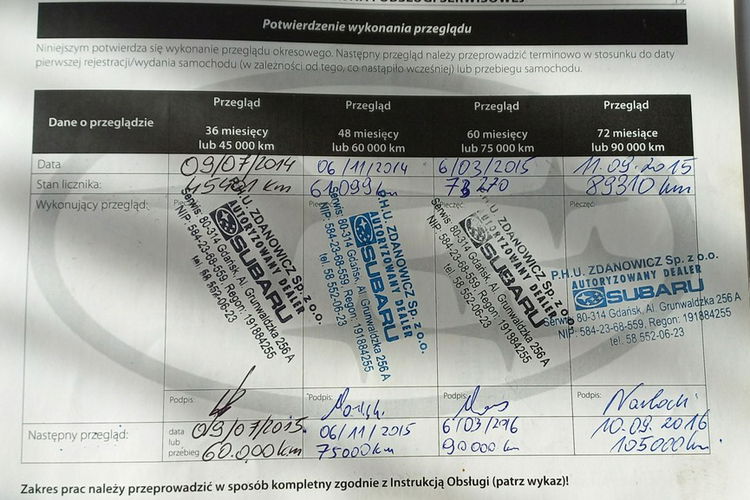 Potwierdzenie wykonania przeglądu
Niniejszym potwierdza się wykonanie przeglądu okresowego. Następny przegląd należy przeprowadzić terminowo w stosunku do daty
pierwszej rejestracji/wydania samochodu (w zależności od tego, co nastąpiło wcześniej) lub przebiegu samochodu.
Dane o przeglądzie
Przegląd
36 miesięcy
lub 45 000 km
Przegląd
48 miesięcy
lub 60 000 km
Przegląd
60 miesięcy
lub 75 000 km
Przegląd
72 miesiące
lub 90 000 km
Data
09/07/2014
06/11/2014
6/03/2015
11.09.2015
Stan licznika:
km
km
89310 km
Wykonujący przegląd:
Pieczęć:
Pieczęć:
P.H.U. ZDANOWICZ Sp. z o.o.
AUTORYZOWANY DEALER
SUBARU
Serwis: 80-314 Gdańsk, Al. Grunwaldzka 256 A
NIP: 584-23-68-559, Regon: 191884255
tel. 58 552-06-23
P.H.U. ZDANOWICZ Sp. z o.o.
AUTORYZOWANY DEALER
SUBARU
Serwis: 80-314 Gdańsk, Al. Grunwaldzka 256 A
NIP: 584-23-68-559, Regon: 191884255
tel. 58 552-06-23
P.H.U. ZDANOWICZ Sp. z o.o.
AUTORYZOWANY DEALER
SUBARU
Serwis: 80-314 Gdańsk, Al. Grunwaldzka 256 A
NIP: 584-23-68-559, Regon: 191884255
tel. 58 552-06-23
P.H.U. ZDANOWICZ Sp. z o.o.
AUTORYZOWANY DEALER
SUBARU
Serwis: 80-314 Gdańsk, Al. Grunwaldzka 256 A
NIP: 584-23-68-559, Regon: 191884255
tel. 58 552-06-23
Podpis:
Podpis:
Podpis:
Podpis:
Następny przegląd:
data
lub
przebieg
09/07/2015
60.000 km
06/11/2015
75000 km
6/03/2016
90000 km
10.09.2016
105000 km
Zakres prac należy przeprowadzić w sposób kompletny zgodnie z Instrukcją Obsługi (patrz wykaz)!